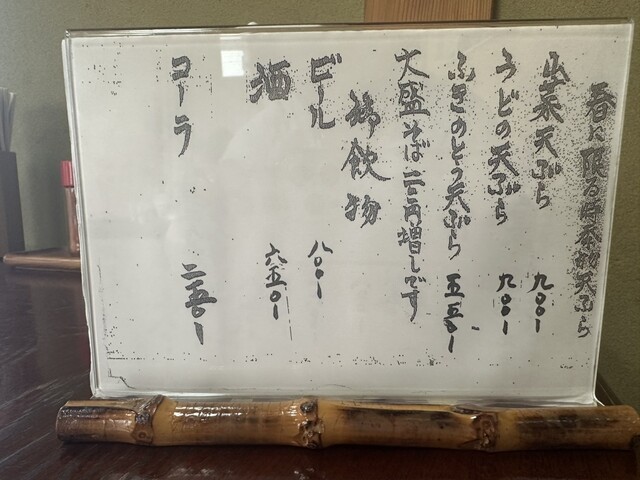 春に限る
天ぷら
山菜天ぷら 九〇〇
うどの天ぷら 九〇〇
ふきのとう天ぷら 五五〇
大盛そば 円増しです
御飲物
ビール 八〇〇
酒 六五〇
コーラ 二五〇